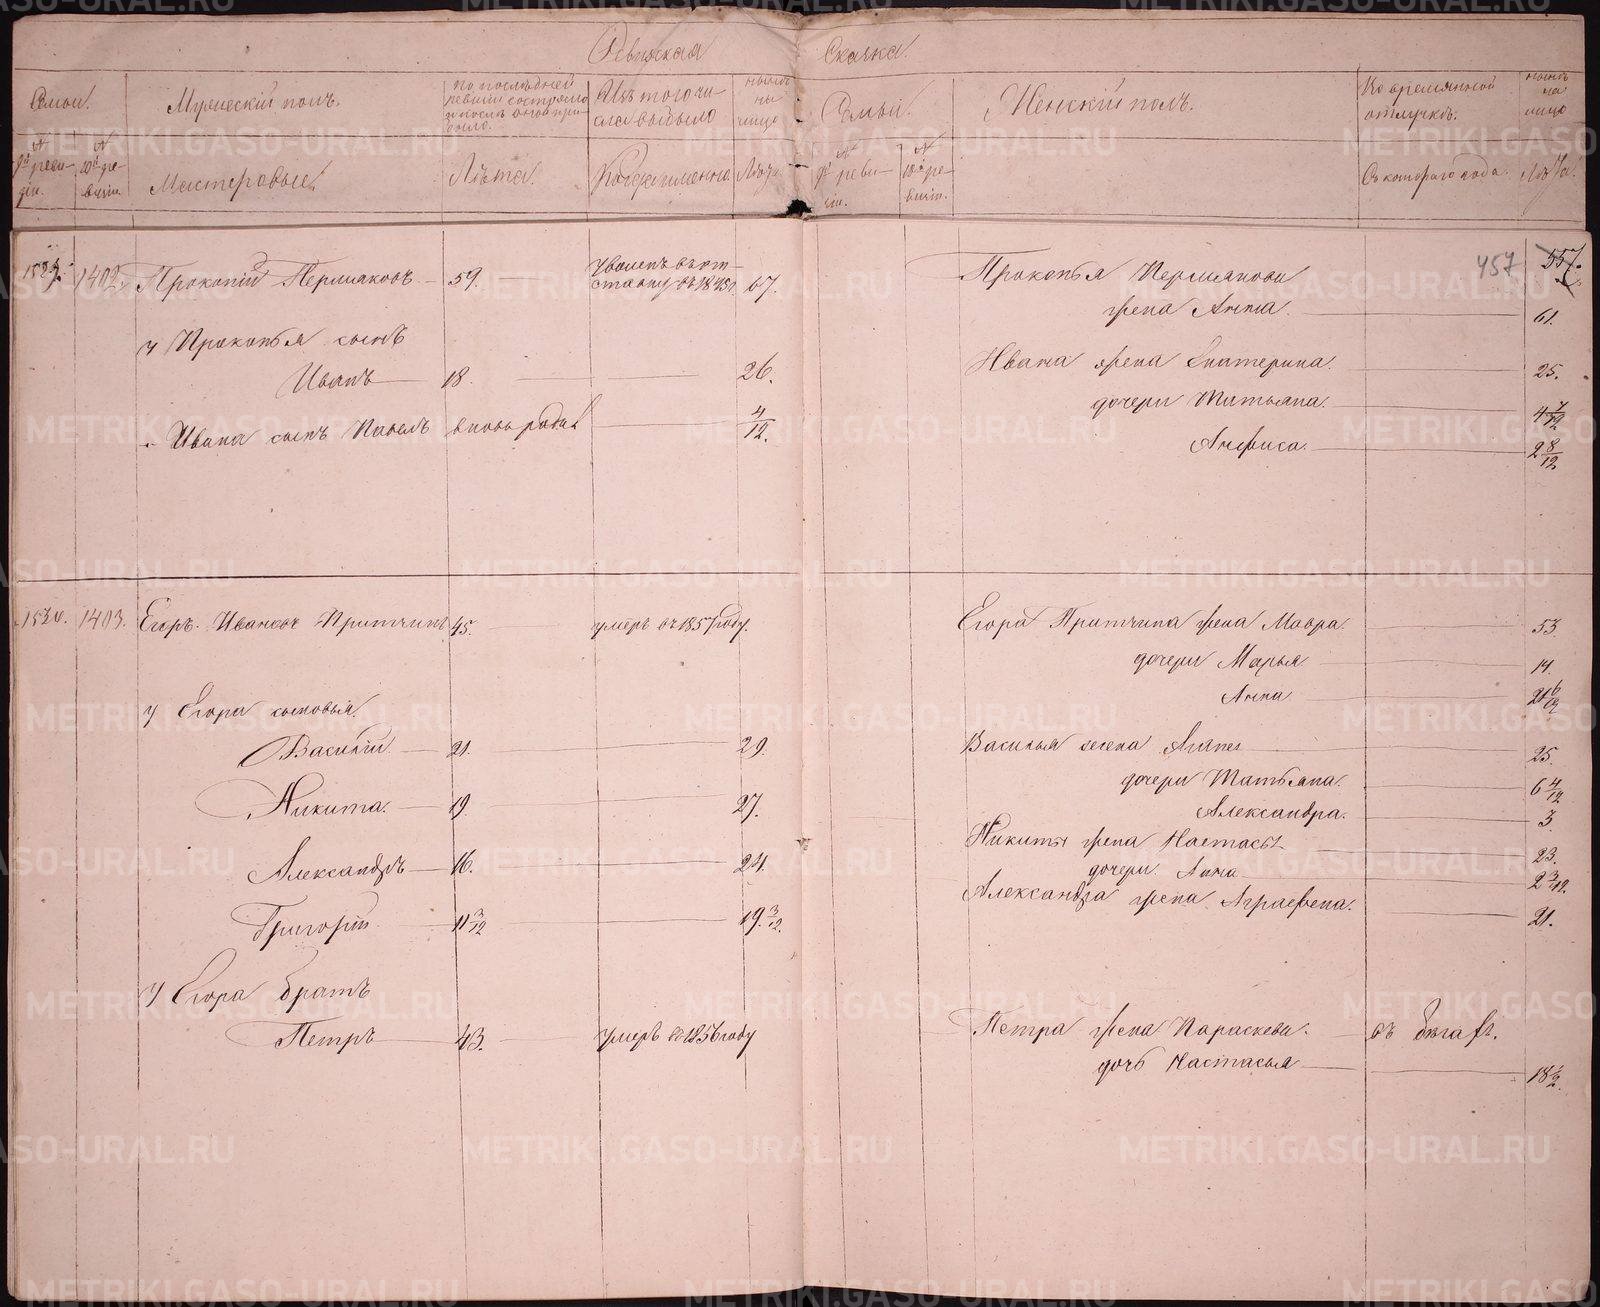 Ревизская Сказка.
Семьи.
Мужескій полъ.
По послѣдней
ревизіи состояло
и послѣ оной при-
было.
Изъ того чи-
сла выбыло
нынѣ
на
лицо
Семьи.
Женскій полъ.
Во временной
отлучкѣ.
нынѣ
на
лицо
№
9й реви-
зіи.
№
10й ре-
визіи.
Мастеровые
Лѣта.
Когда именно
Лѣта
№
9й реви-
зіи.
№
10й ре-
визіи.
Съ котораго года.
Лѣта.
457 557.
1402. Прокопій Пермяковъ 59. уволенъ въ от-
ставку въ 1845 г. 67.
у Прокопья сынъ
Иванъ 18. 26.
Ивана сынъ Павелъ вновь родил. 4/12.
Прокопья Пермякова
жена Анна. 61.
Ивана жена Екатерина. 25.
дочери Татьяна. 4 7/12
Анфиса. 2 8/12
1403. Егоръ Ивановъ Притчинъ 45. умеръ въ 1857 году.
у Егора сыновья.
Василій 21. 29.
Никита. 19. 27.
Александръ 16. 24.
Григорій 11 3/12 19 3/12.
у Егора братъ
Петръ 43. умеръ въ 1856 году
Егора Притчина жена Мавра. 53.
дочери Марья 14.
Анна
Василья жена 25.
дочери Татьяна. 6 4/12
Александра. 3.
Никиты жена Настасья 23.
дочери. Анна 2 3/12.
Александра жена Аграфена. 21.
Петра жена Параскева. въ бѣгахъ.
дочь Настасья 18
METRIKI.GASO-URAL.RU